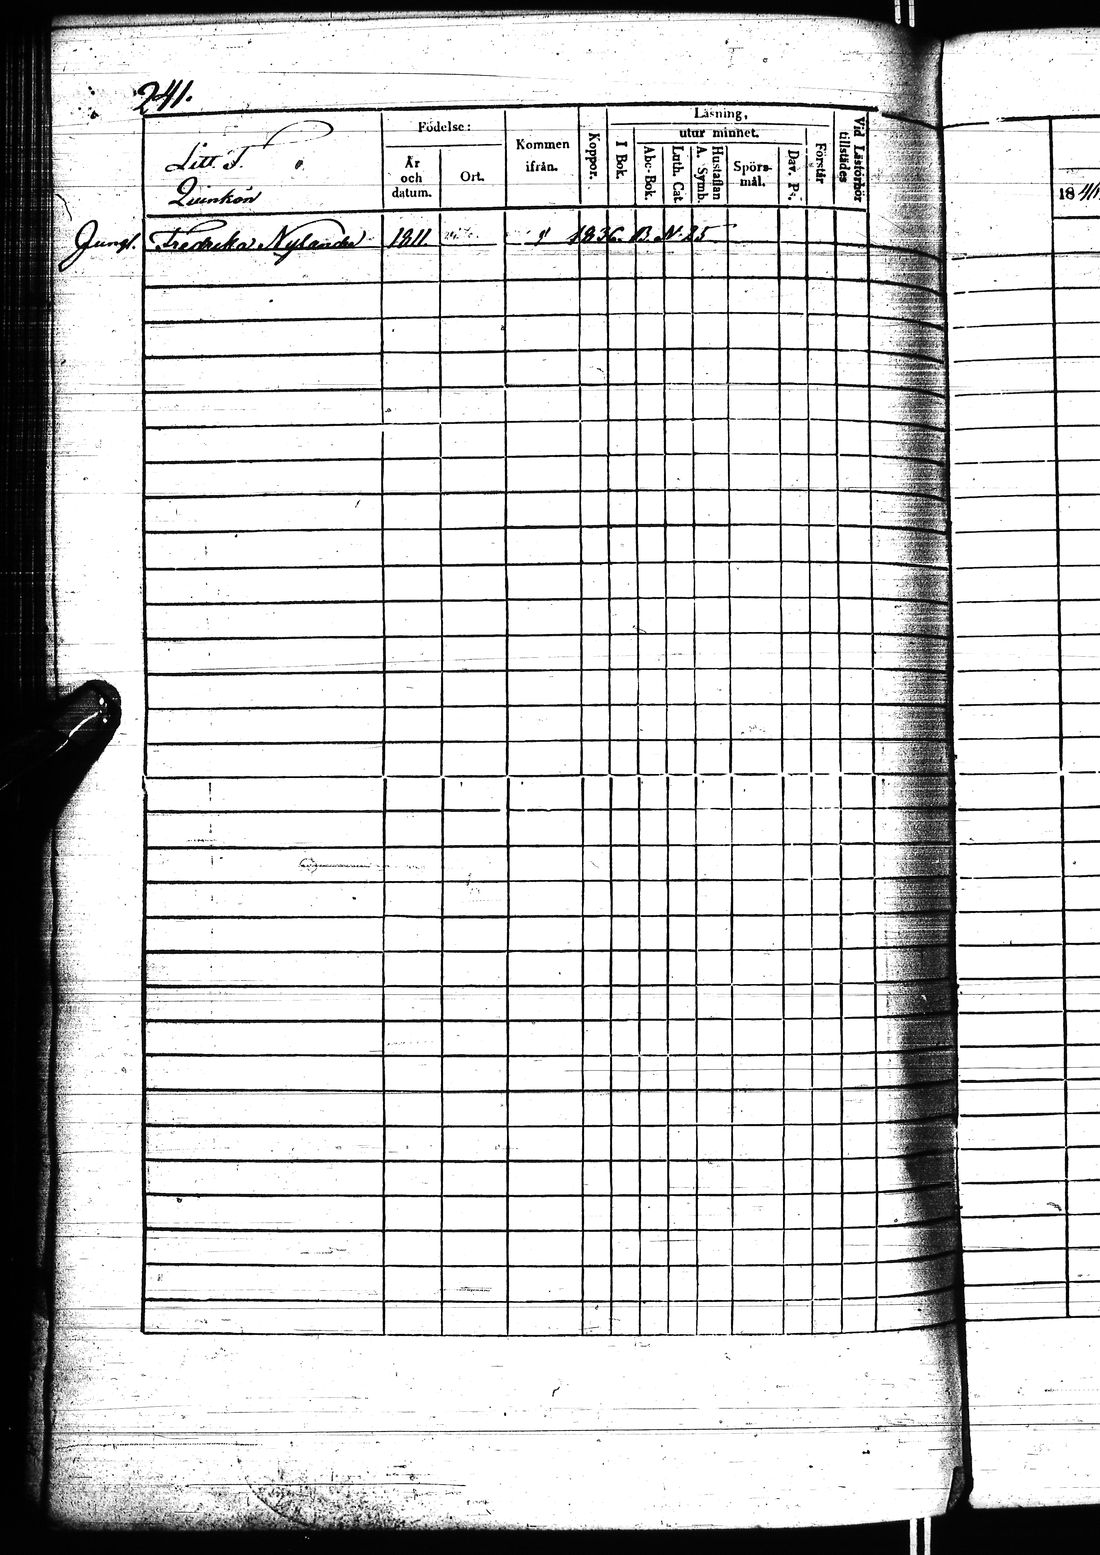 241.
Litt. F.
Quinkön
Födelse:
År och datum.
Ort.
Kommen ifrån.
Koppor.
Läsning,
I Bok.
utur minnet.
Abc-Bok.
Luth. Cat
A. Symb. Hustaflan
Spörs-mål.
Dav. Ps.
Förstår
Vid Läsförhör tillstädes
1841
Jungf. Fredrika Nylander 1811. 1836. B. N. 25